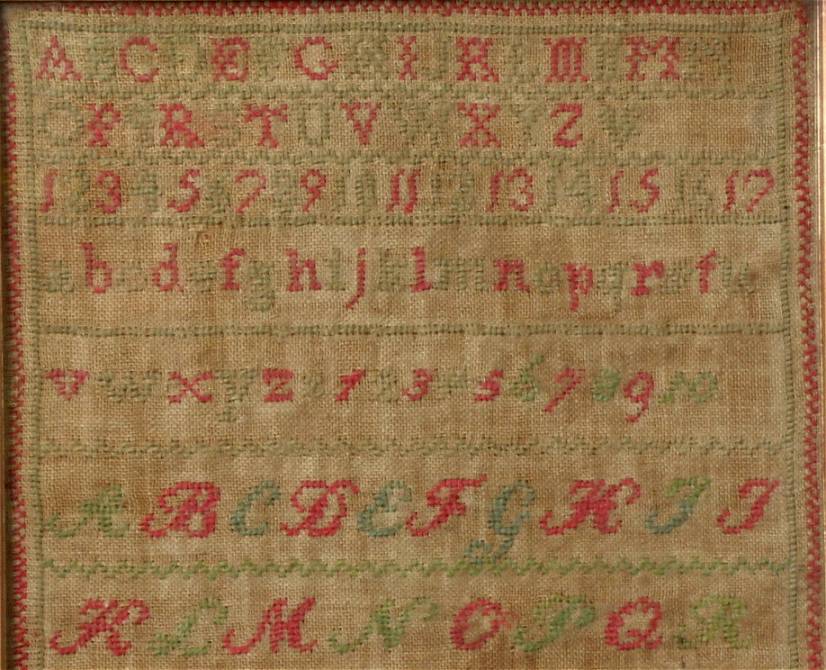 A B C D E F G H I K L M N
O P Q R S T U V W X Y Z
1 2 3 4 5 6 7 8 9 10 11 12 13 14 15 16 17
a b c d e f g h i j k l m n o p q r s t u
v w x y z 1 2 3 4 5 6 7 8 9 10
A B C D E F G H I J
K L M N O P Q R